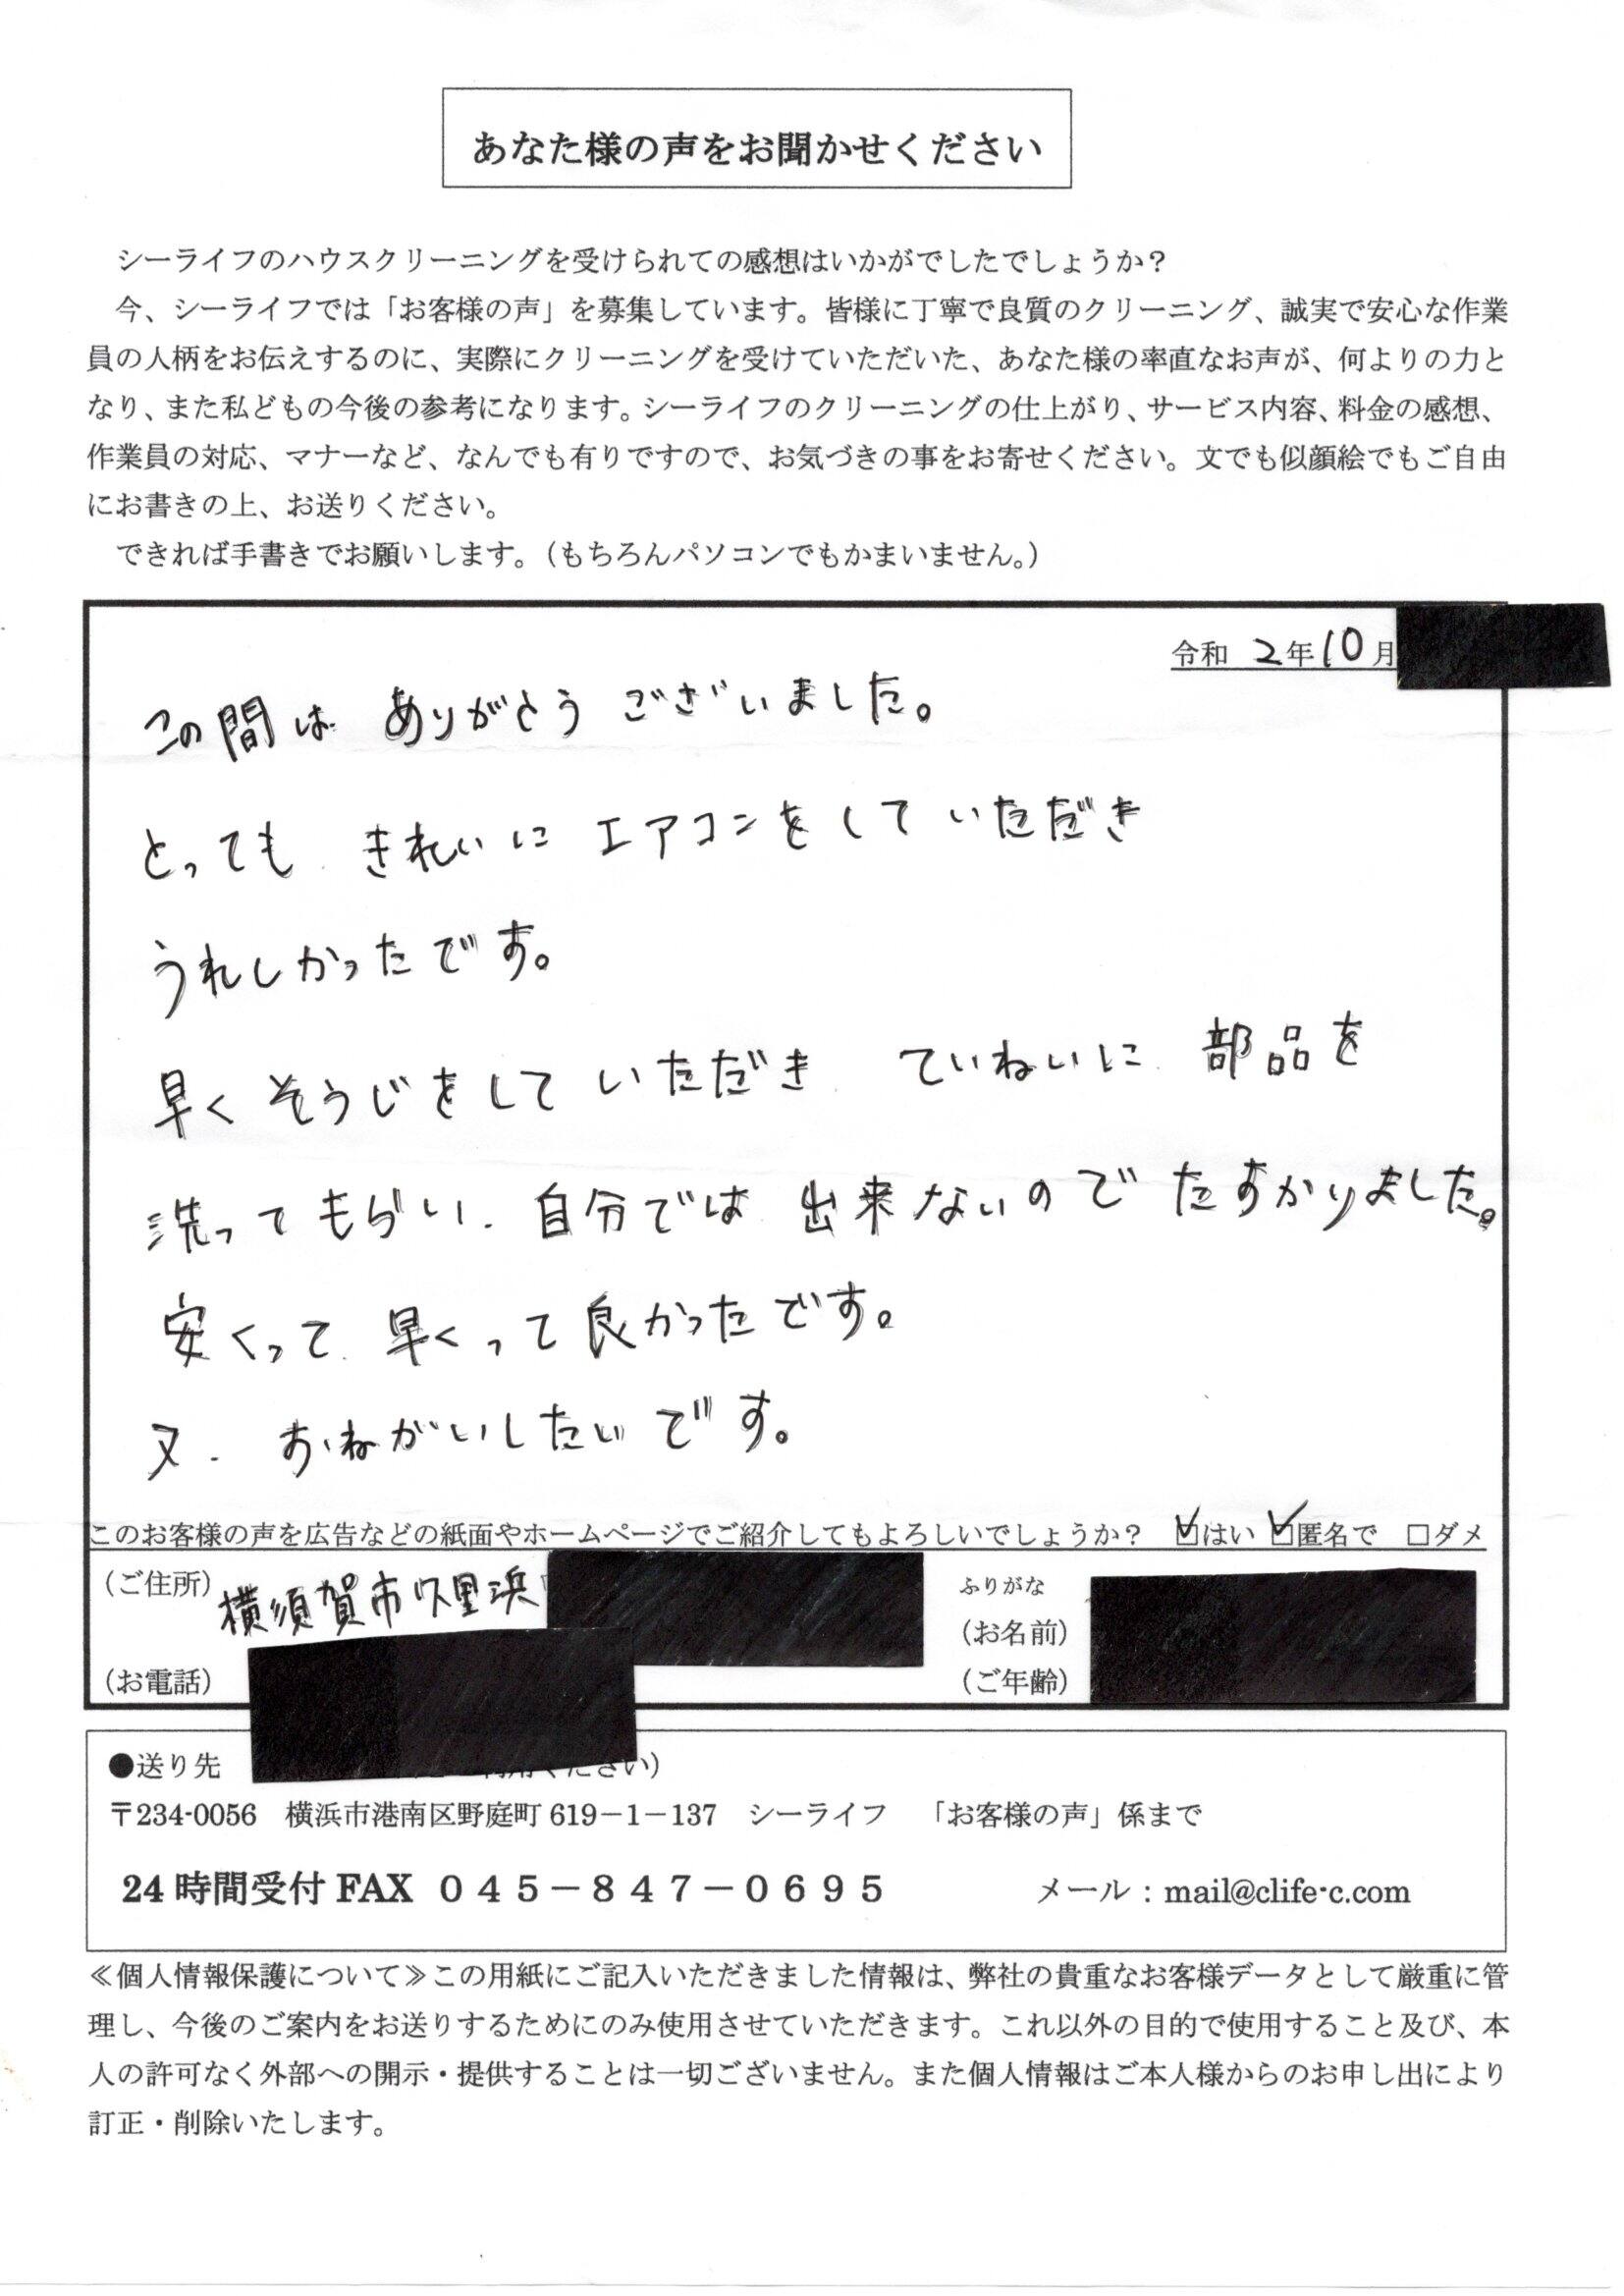 あなた様の声をお聞かせください
シーライフのハウスクリーニングを受けられての感想はいかがでしたでしょうか？
今、シーライフでは「お客様の声」を募集しています。皆様に丁寧で良質のクリーニング、誠実で安心な作業
員の人柄をお伝えするのに、実際にクリーニングを受けていただいた、あなた様の率直なお声が、何よりの力と
なり、また私どもの今後の参考になります。シーライフのクリーニングの仕上がり、サービス内容、料金の感想、
作業員の対応、マナーなど、なんでも有りですので、お気づきの事をお寄せください。文でも似顔絵でもご自由
にお書きの上、お送りください。
できれば手書きでお願いします。（もちろんパソコンでもかまいません。）
令和 2年10月
この間は ありがとう ございました。
とっても きれいに エアコンをして いただき
うれしかったです。
早く そうじをして いただき ていねいに 部品を
洗って もらい、自分では 出来ないので たすかりました。
安くって 早くって 良かったです。
又、おねがいしたいです。
このお客様の声を広告などの紙面やホームページでご紹介してもよろしいでしょうか？ ☑はい ☑匿名で □ダメ
（ご住所）横須賀市久里浜 ふりがな
（お名前）
（お電話） （ご年齢）
●送り先 ください）
〒234-0056 横浜市港南区野庭町619－1－137 シーライフ 「お客様の声」係まで
24時間受付FAX ０４５－８４７－０６９５ メール：mail@clife-c.com
≪個人情報保護について≫この用紙にご記入いただきました情報は、弊社の貴重なお客様データとして厳重に管
理し、今後のご案内をお送りするためにのみ使用させていただきます。これ以外の目的で使用すること及び、本
人の許可なく外部への開示・提供することは一切ございません。また個人情報はご本人様からのお申し出により
訂正・削除いたします。